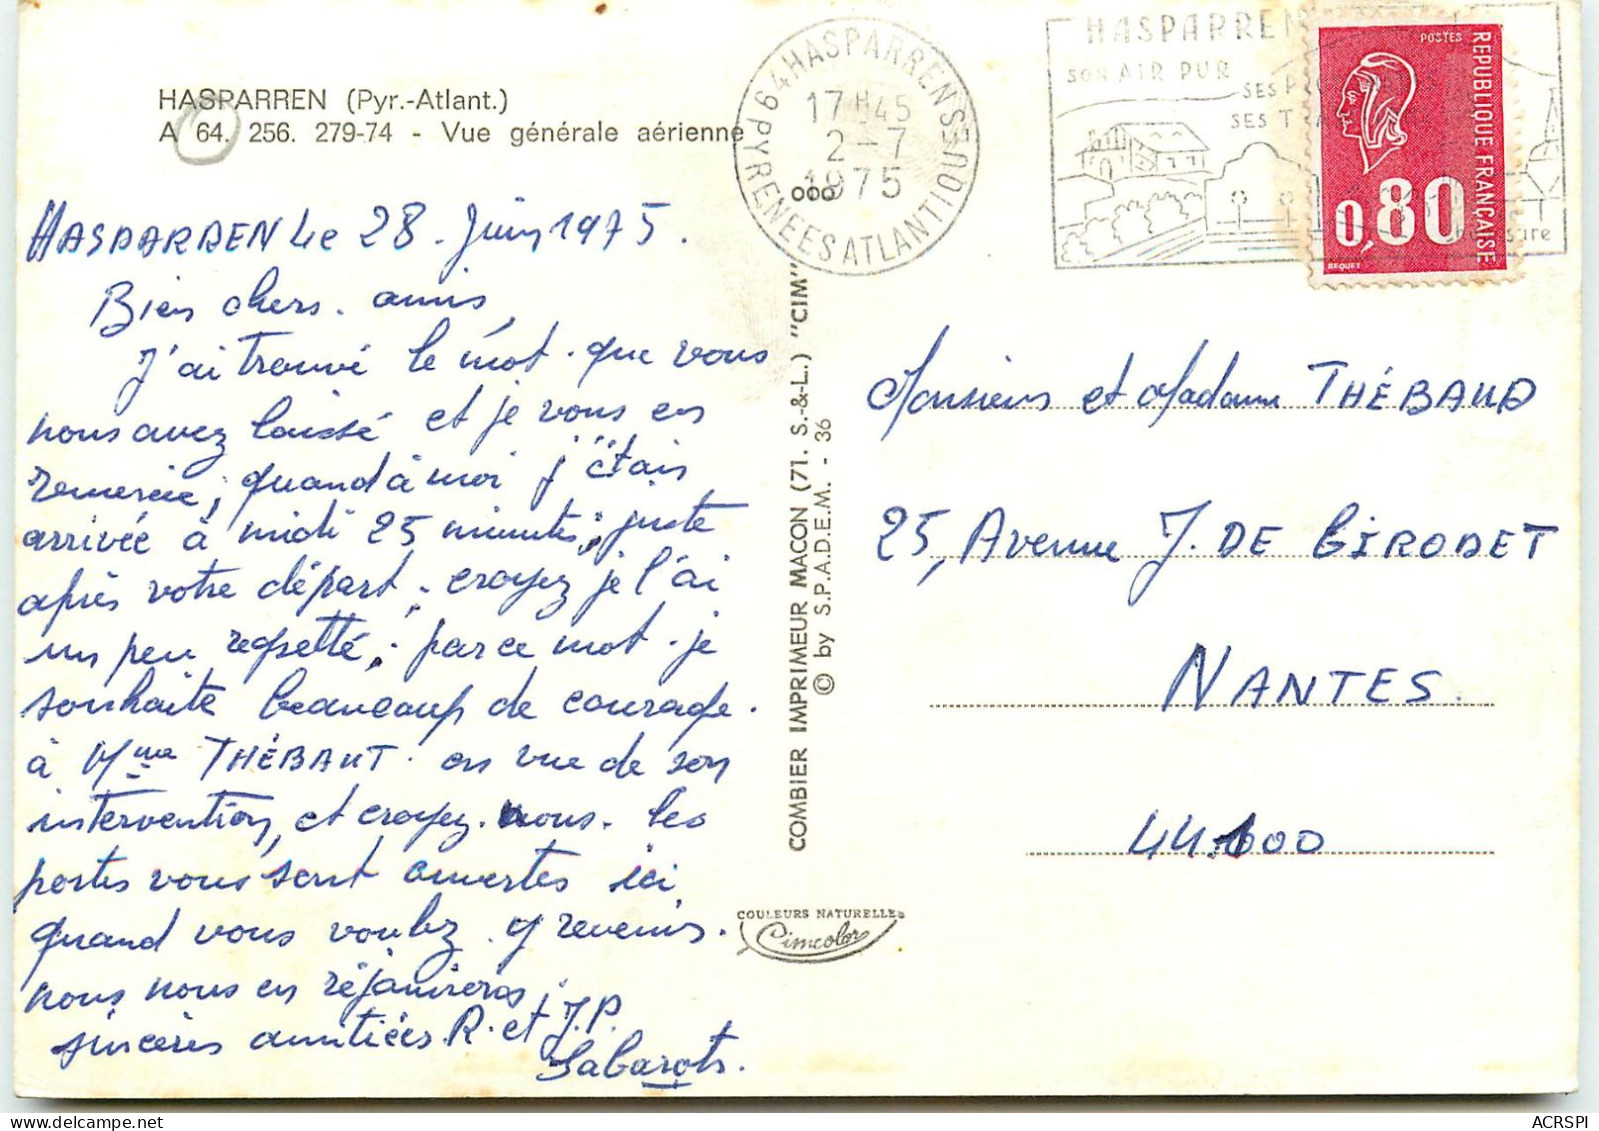 HASPARREN (Pyr.-Atlant.)
A 64. 256. 279-74 - Vue générale aérienne
HASPARREN le 28. Juin 1975.
Bien chers. amis,
J'ai trouvé le mot. que vous
nous avez laissé et je vous en
remercie; quand à moi j'étais
arrivée à midi 25 minutes; juste
après votre départ; croyez je l'ai
un peu regretté; par ce mot. je
souhaite beaucoup de courage.
à Mme THÉBAUT. en vue de son
intervention, et croyez. nous. les
portes vous sont ouvertes ici
quand vous voulez y revenir.
nous nous en réjouirons;
sincères amitiées R. et J.P.
Sabarots.
64 HASPARREN
PYRENEES ATLANTIQUES
17H45
2-7
1975
ooo
HASPARREN
SON AIR PUR
SES
SES T
POSTES
REPUBLIQUE FRANÇAISE
0,80
BEQUET
COMBIER IMPRIMEUR MACON (71. S.-&-L.) "CIM"
© by S.P.A.D.E.M. - 36
COULEURS NATURELLES
Cimcolor
Monsieur et Madame THÉBAUD
25, Avenue J. DE GIRODET
NANTES.
44.100
ACRSPI